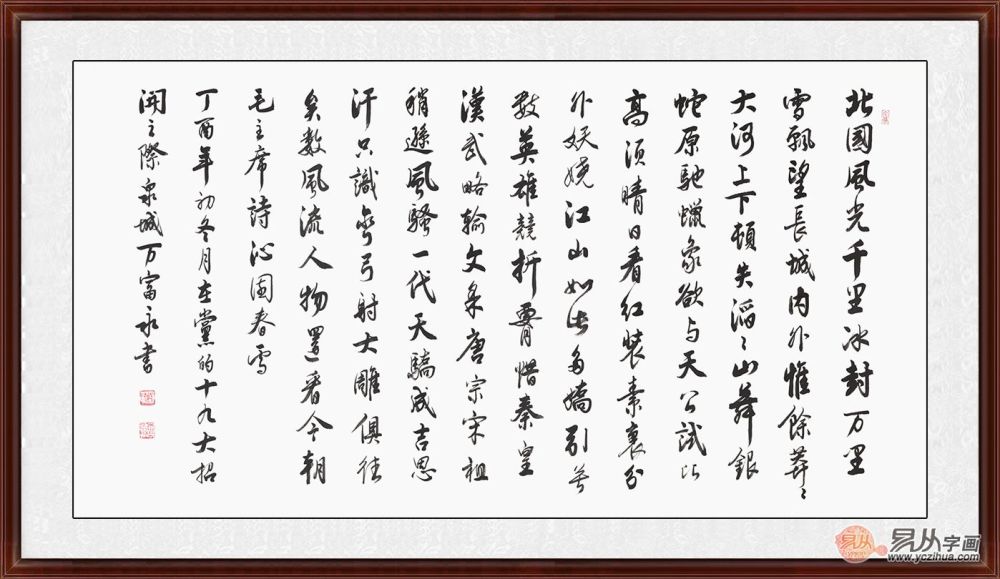 北國風光千里冰封万里
雪飄望長城内外惟餘莽〻
大河上下頓失滔〻山舞銀
蛇原馳蠟象欲与天公試比
高須晴日看红裝素裹分
外妖嬈江山如此多嬌引无
数英雄競折腰惜秦皇
漢武略输文采唐宗宋祖
稍遜風騷一代天驕成吉思
汗只識彎弓射大雕俱往
矣数風流人物還看今朝
毛主席詩沁園春雪
丁酉年初冬月在黨的十九大招
開之際泉城万富永書
易从字画
www.yczihua.com